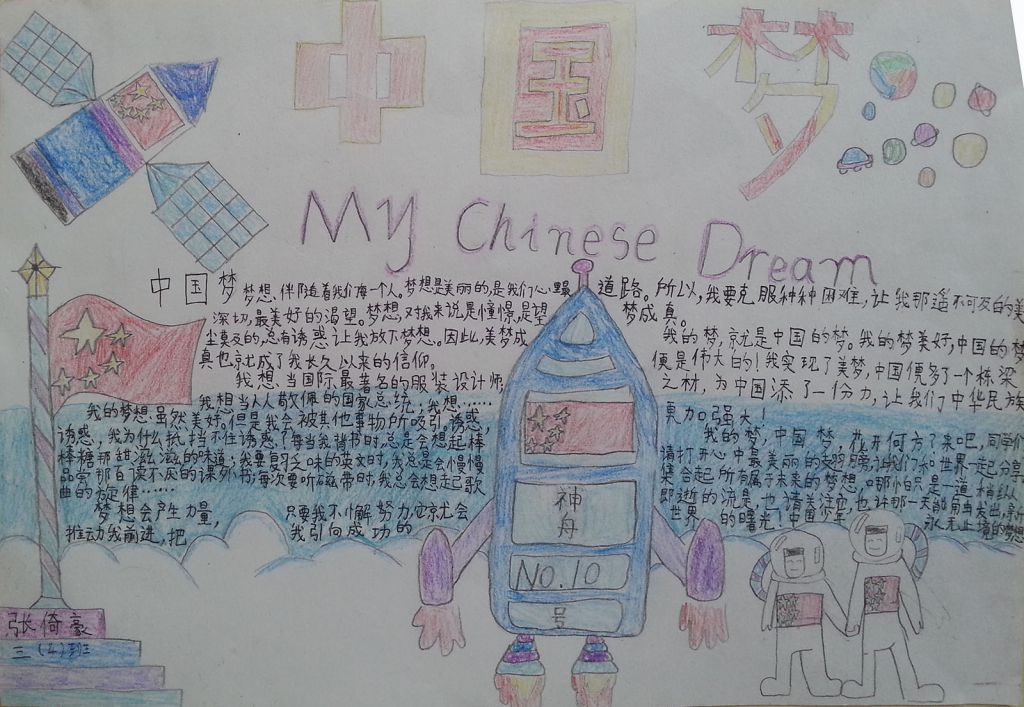 中国梦
My Chinese Dream
中国梦
梦想，伴随着我们每一个人。梦想是美丽的，是我们心里最
深切，最美好的渴望。梦想，对我来说是憧憬，是望
尘莫及的，总有诱惑让我放下梦想。因此，美梦成
真也就成了我长久以来的信仰。
我想当国际最著名的服装设计师，
我想当人人敬佩的国家总统，我想……
我的梦想虽然美好。但是我会被其他事物所吸引，诱惑，
诱惑，我为什么抵挡不住诱惑？每当我背书时，总是会想起棒
棒糖那甜滋滋的味道；我要复习乏味的英文时，我总是会慢慢
品尝那百读不厌的课外书；每次要听磁带时，我总会想起歌
曲的旋律……
梦想会产生力量，只要我不懈努力，它就会
推动我前进，把我引向成功的
道路。所以，我要克服种种困难，让我那遥不可及的美
梦成真。
我的梦，就是中国的梦。我的梦美好，中国的梦
便是伟大的！我实现了美梦，中国便多了一个栋梁
之材，为中国添了一份力，让我们中华民族
更加强大！
我的梦，中国梦，花开何方？来吧，同学们
请打开心中最美丽的美好，让我们和世界一起分享
集合起所有属于未来的梦想，哪怕只是一道稍纵
即逝的流星，也请着添，也许那一天能曲出新
世界的曙光！中国永无止境的梦想
神舟
NO.10
号
张倚豪
三（4）班